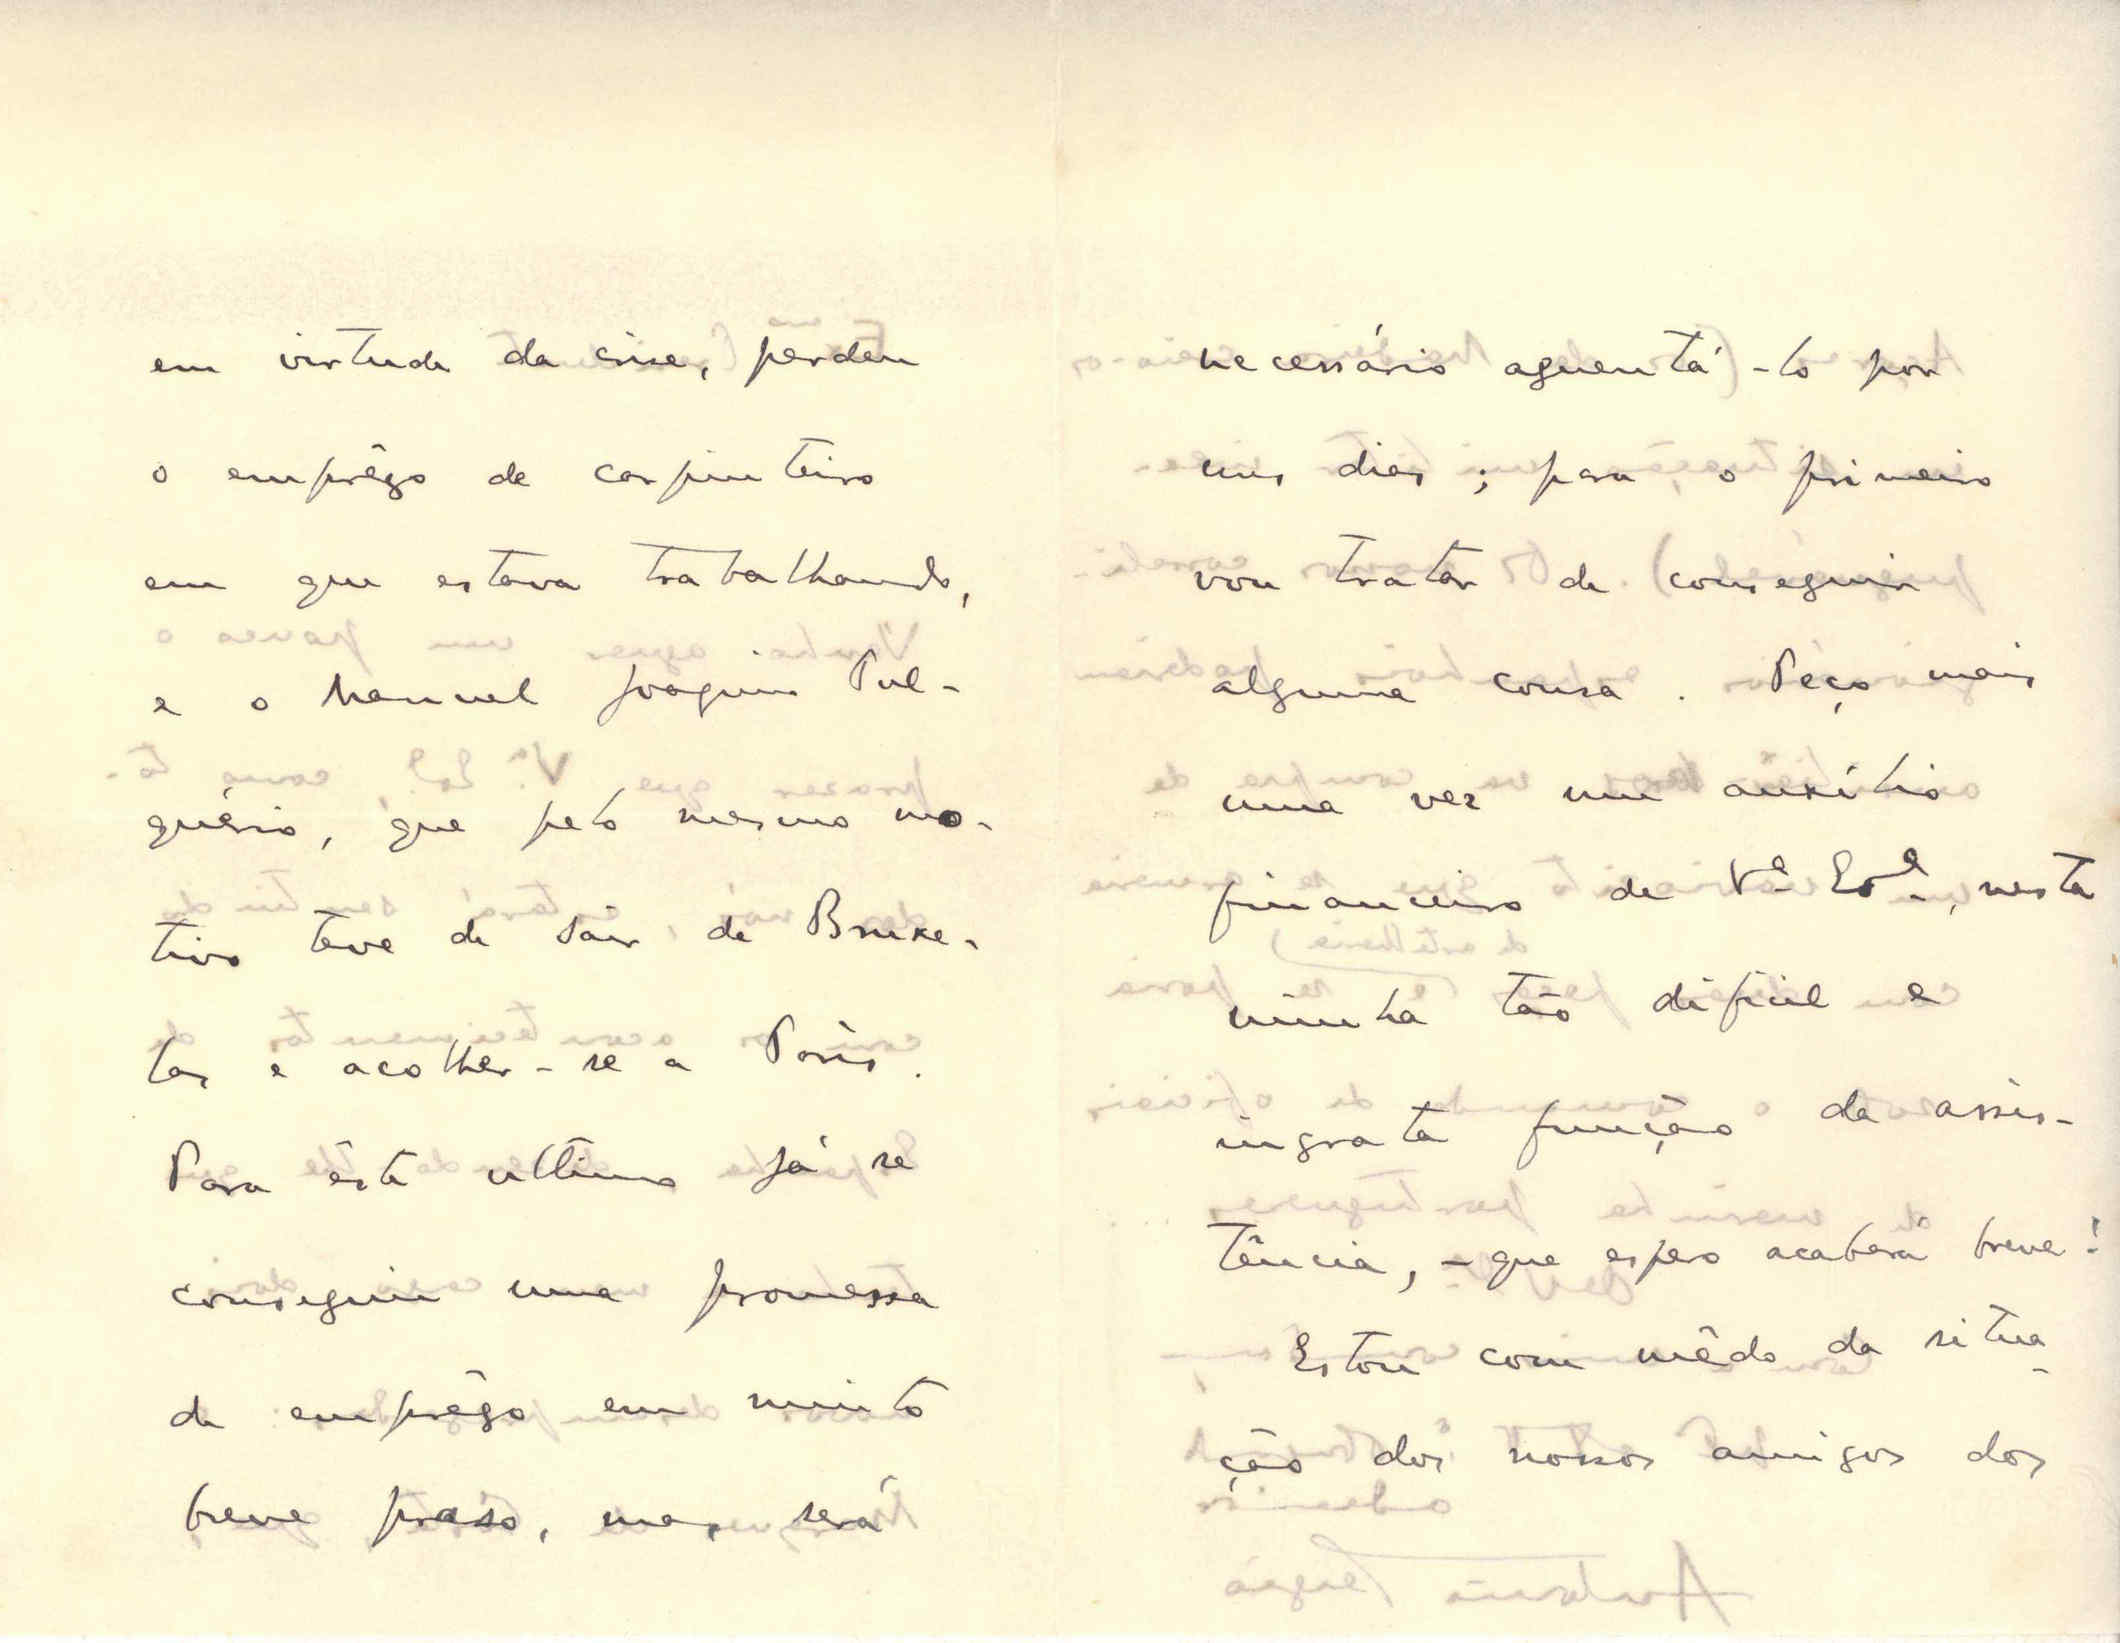 em virtude da crise, perdeu
o emprêgo de carpinteiro
em que estava trabalhando,
e o Manuel Joaquim Pul-
quério, que pelo mesmo mo-
tivo teve de sair de Bruxe-
las e acolher-se a Paris.
Para êste ultimo já se
conseguiu uma promessa
de emprêgo em muito
breve praso, mas será
necessário aguentá-lo por
uns dias; para o primeiro
vou tratar de conseguir
alguma cousa. Peço mais
uma vez um auxílio
financeiro de Vª Exª, nesta
minha tão difícil e
ingrata função da assis-
tência, - que espero acabará breve!
Estou com mêdo da situa-
ção dos nossos amigos dos